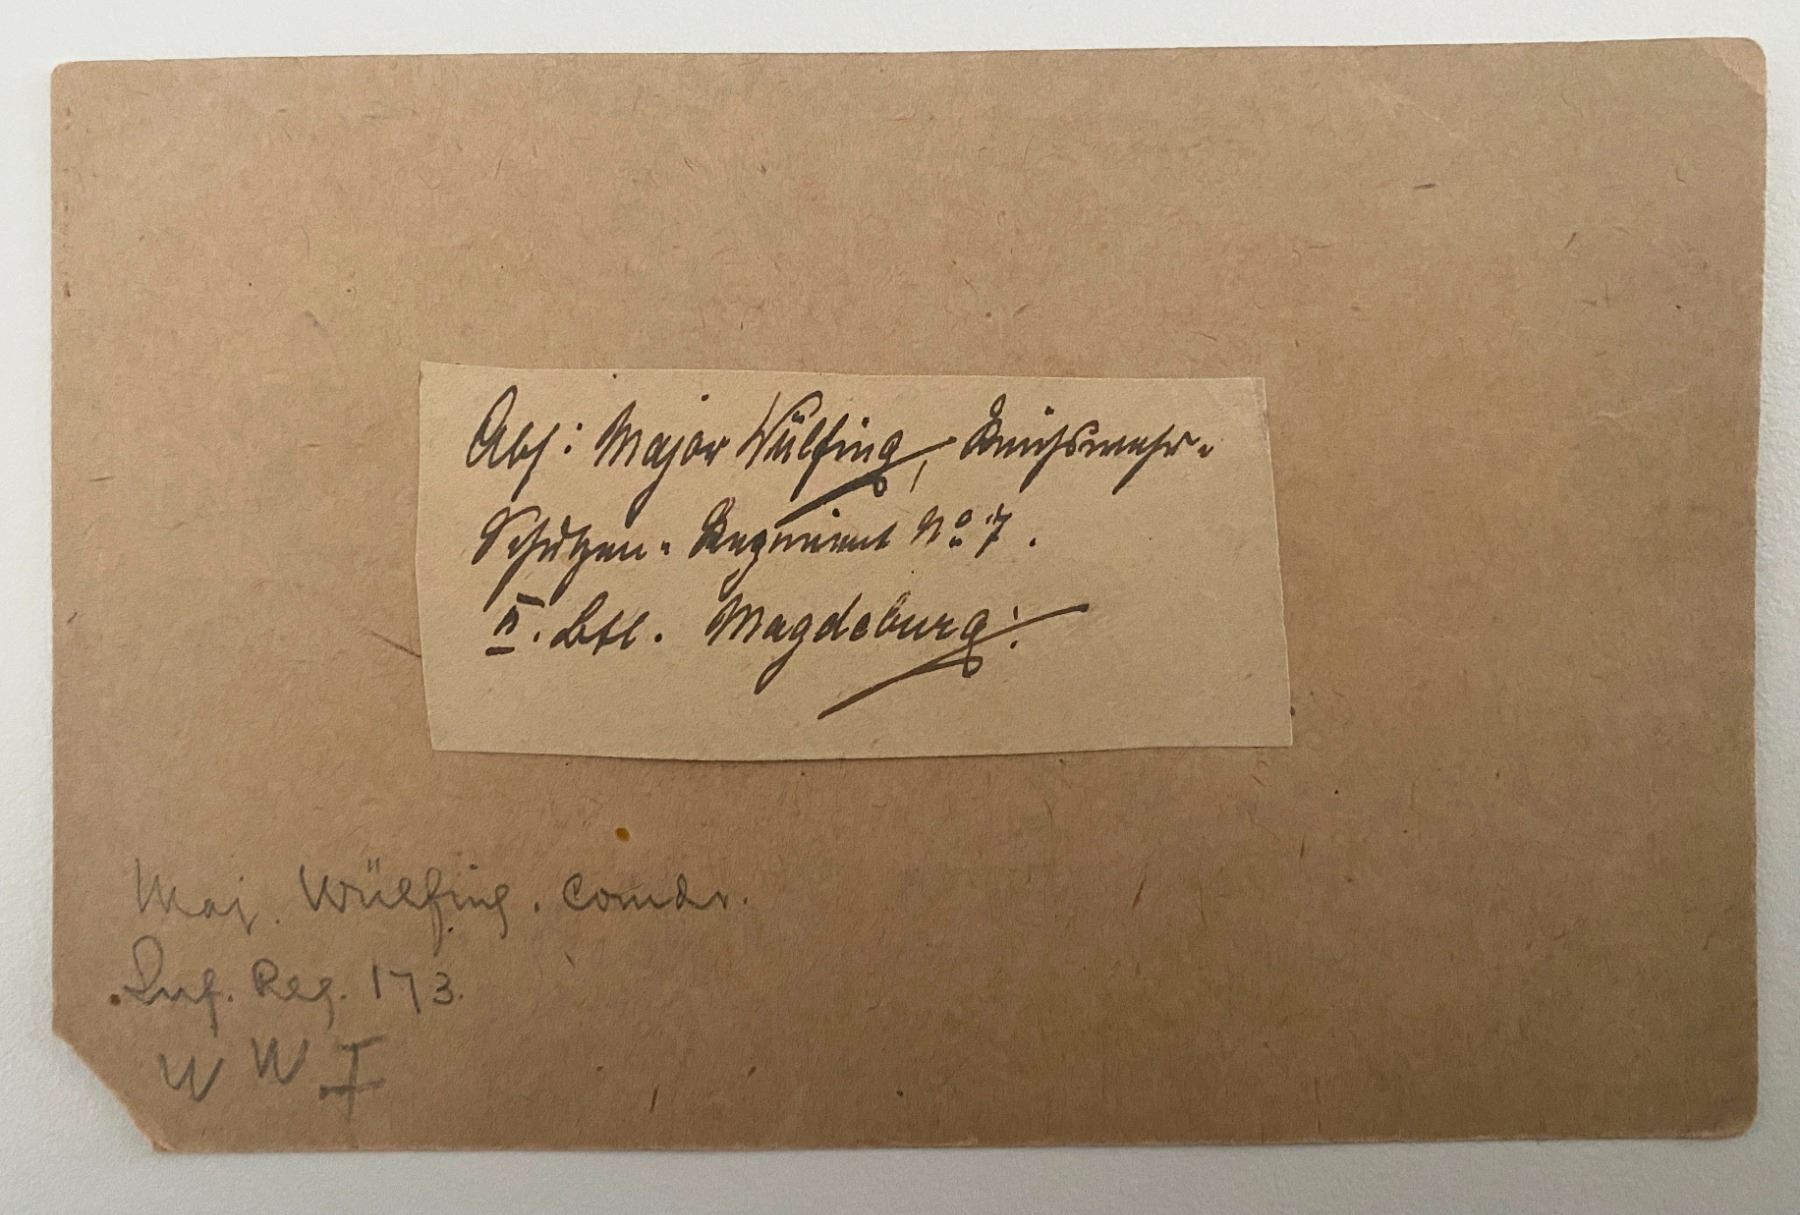 Abs: Major Wülfing, Reichswehr-
Schützen-Regiment No 7.
II. Btl. Magdeburg.
Maj. Wülfing. Comdr.
Inf. Reg. 173.
WW I